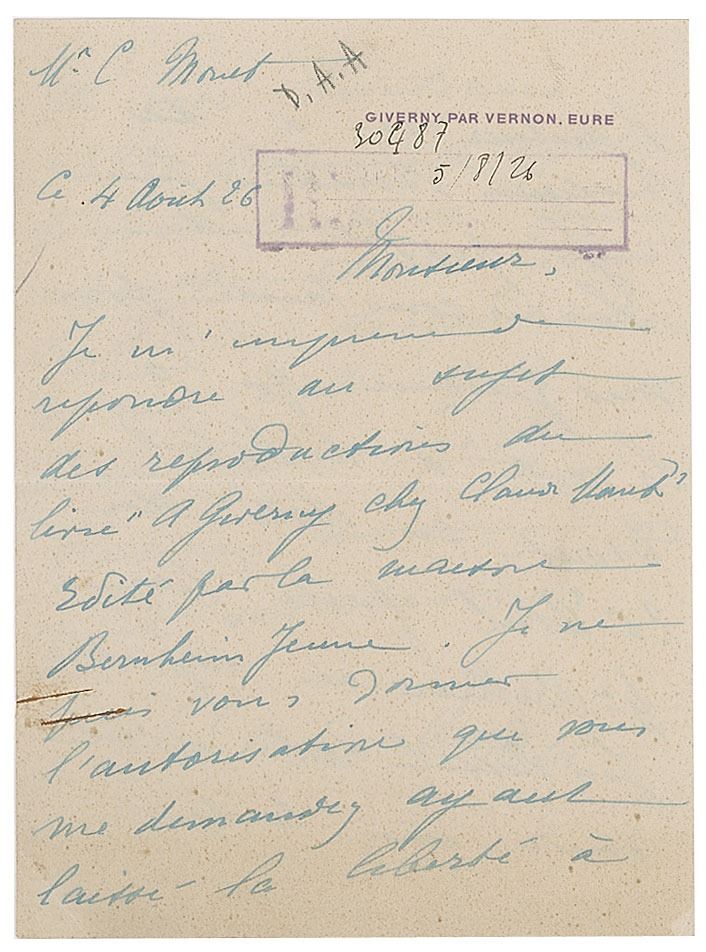 Mr C Monet
D.A.A
GIVERNY PAR VERNON. EURE
30487
5/8/26
Ce 4 Août 26
Monsieur,
Je m'empresse de
repondre au sujet
des reproductions du
livre "A Giverny chez Claude Monet"
Edité par la maison
Bernheim Jeune. Je ne
puis vous donner
l'autorisation que vous
me demandez ayant
laissé la liberté à